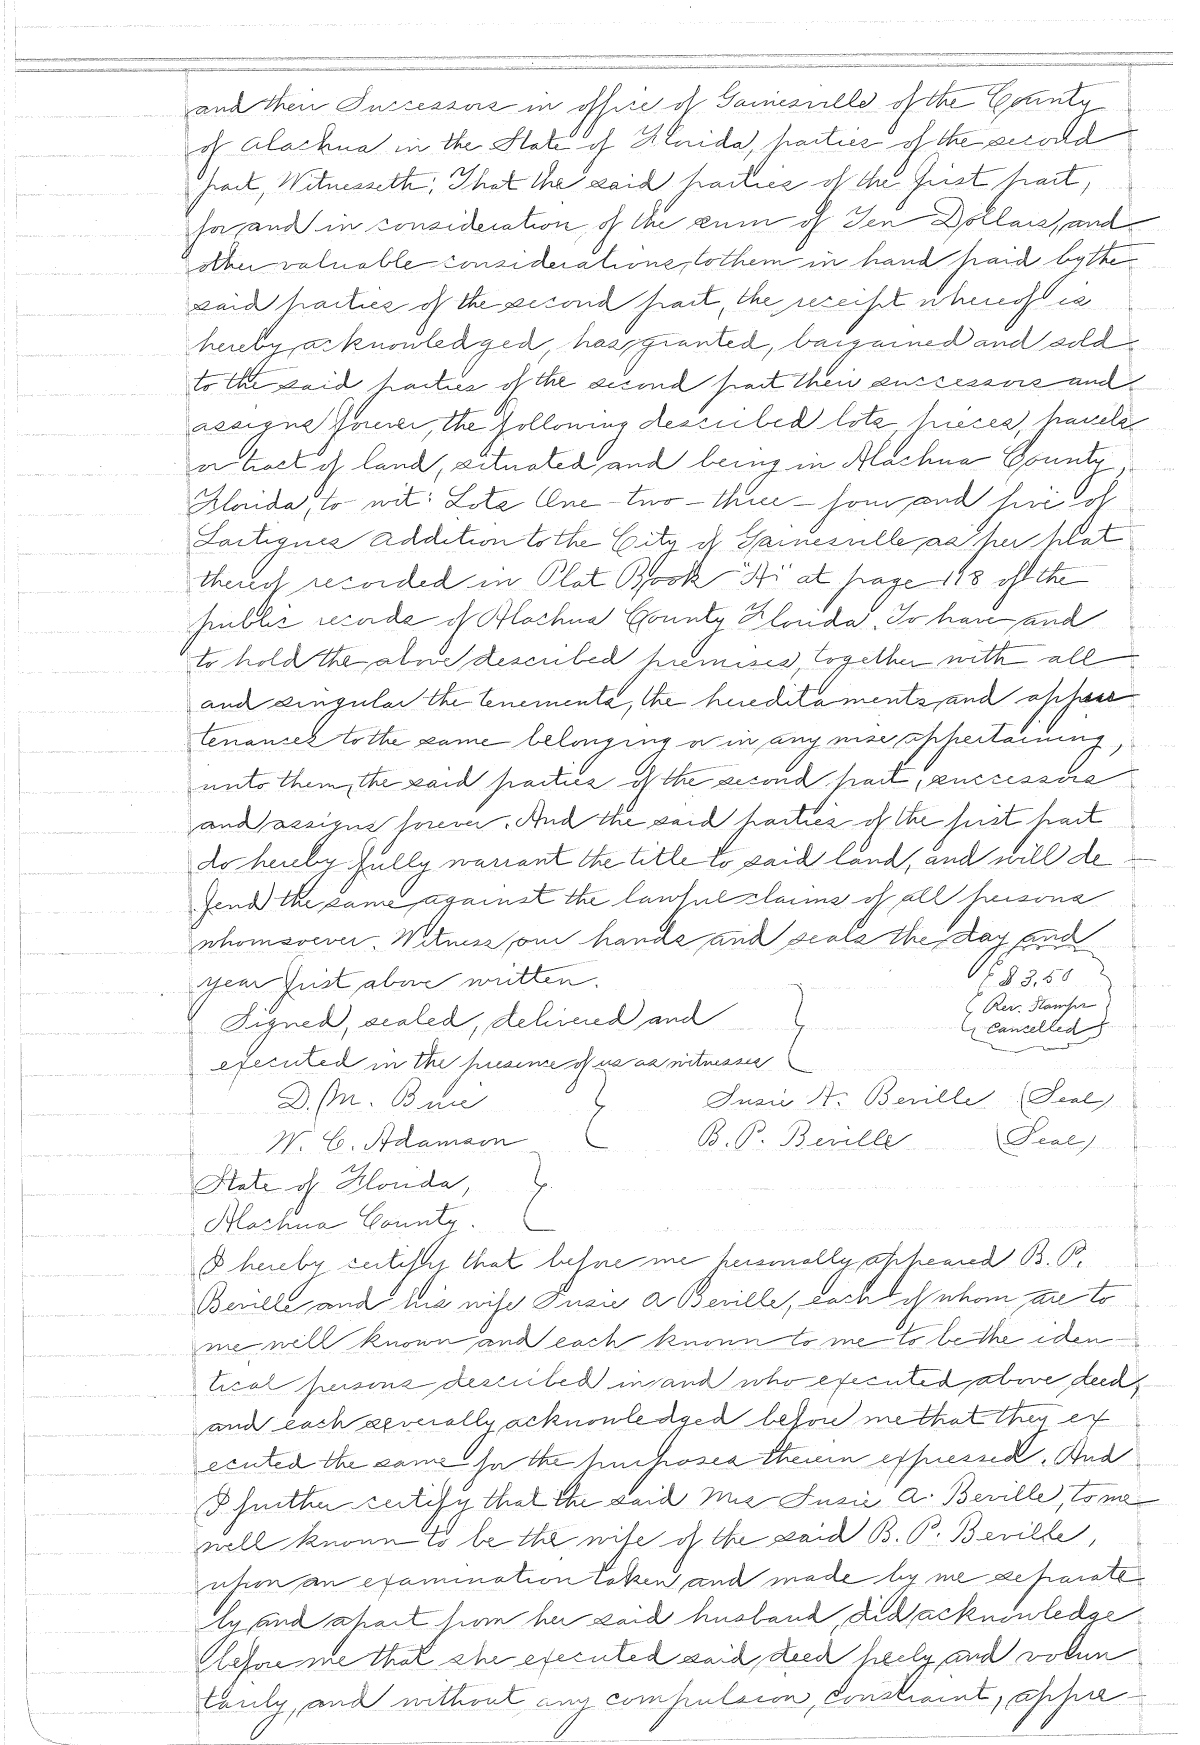 and their Successors in office of Gainesville of the County
of Alachua in the State of Florida, parties of the second
part, Witnesseth; That the said parties of the first part,
for and in consideration of the sum of Ten Dollars, and
other valuable considerations, to them in hand paid by the
said parties of the second part, the receipt whereof is
hereby acknowledged, has granted, bargained and sold
to the said parties of the second part their successors and
assigns forever, the following described lots, pieces, parcels
or tract of land, situated and being in Alachua County,
Florida, to wit: Lots One - two - three - four and five of
Lartigues addition to the City of Gainesville as per plat
thereof recorded in Plat Book "A" at page 118 of the
public records of Alachua County Florida. To have and
to hold the above described premises, together with all
and singular the tenements, the hereditaments and appur
tenances to the same belonging or in any wise appertaining,
unto them, the said parties of the second part, successors
and assigns forever. And the said parties of the first part
do hereby fully warrant the title to said land, and will de
fend the same against the lawful claims of all persons
whomsoever. Witness our hands and seals the day and
year first above written.
$3.50
Rev. Stamps
Cancelled
Signed, sealed, delivered and
executed in the presence of us as witnesses
D. M. Buie Susie A. Beville (Seal)
W. C. Adamson B. P. Beville (Seal)
State of Florida,
Alachua County.
I hereby certify that before me personally appeared B. P.
Beville and his wife Susie A Beville, each of whom are to
me well known and each known to me to be the iden
tical persons described in and who executed above deed,
and each severally acknowledged before me that they ex
ecuted the same for the purposes therein expressed. And
I further certify that the said Mrs Susie A. Beville, to me
well known to be the wife of the said B. P. Beville,
upon an examination taken and made by me separate
ly and apart from her said husband, did acknowledge
before me that she executed said deed freely and volun
tarily, and without any compulsion, constraint, appre-